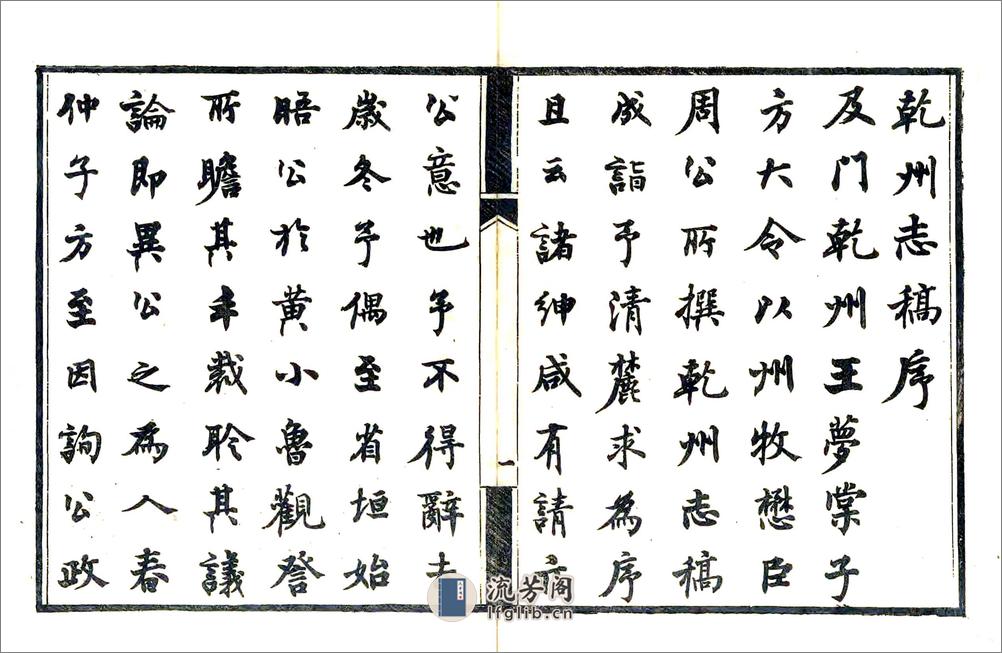 乾州志稿序
及門乾州王夢棠子
方大令以州牧懋臣
周公所撰乾州志稿
成詣予清麓求為序
且云諸紳咸有請亦
公意也予不得辭去
歲冬予偶至省垣始
晤公於黃小魯觀詧
所瞻其丰裁聆其議
論即異公之為人春
仲子方至因詢公政
一
流芳阁
lfglib.cn